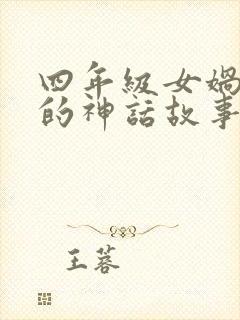 四年級女媧
的神話故事
王蓉